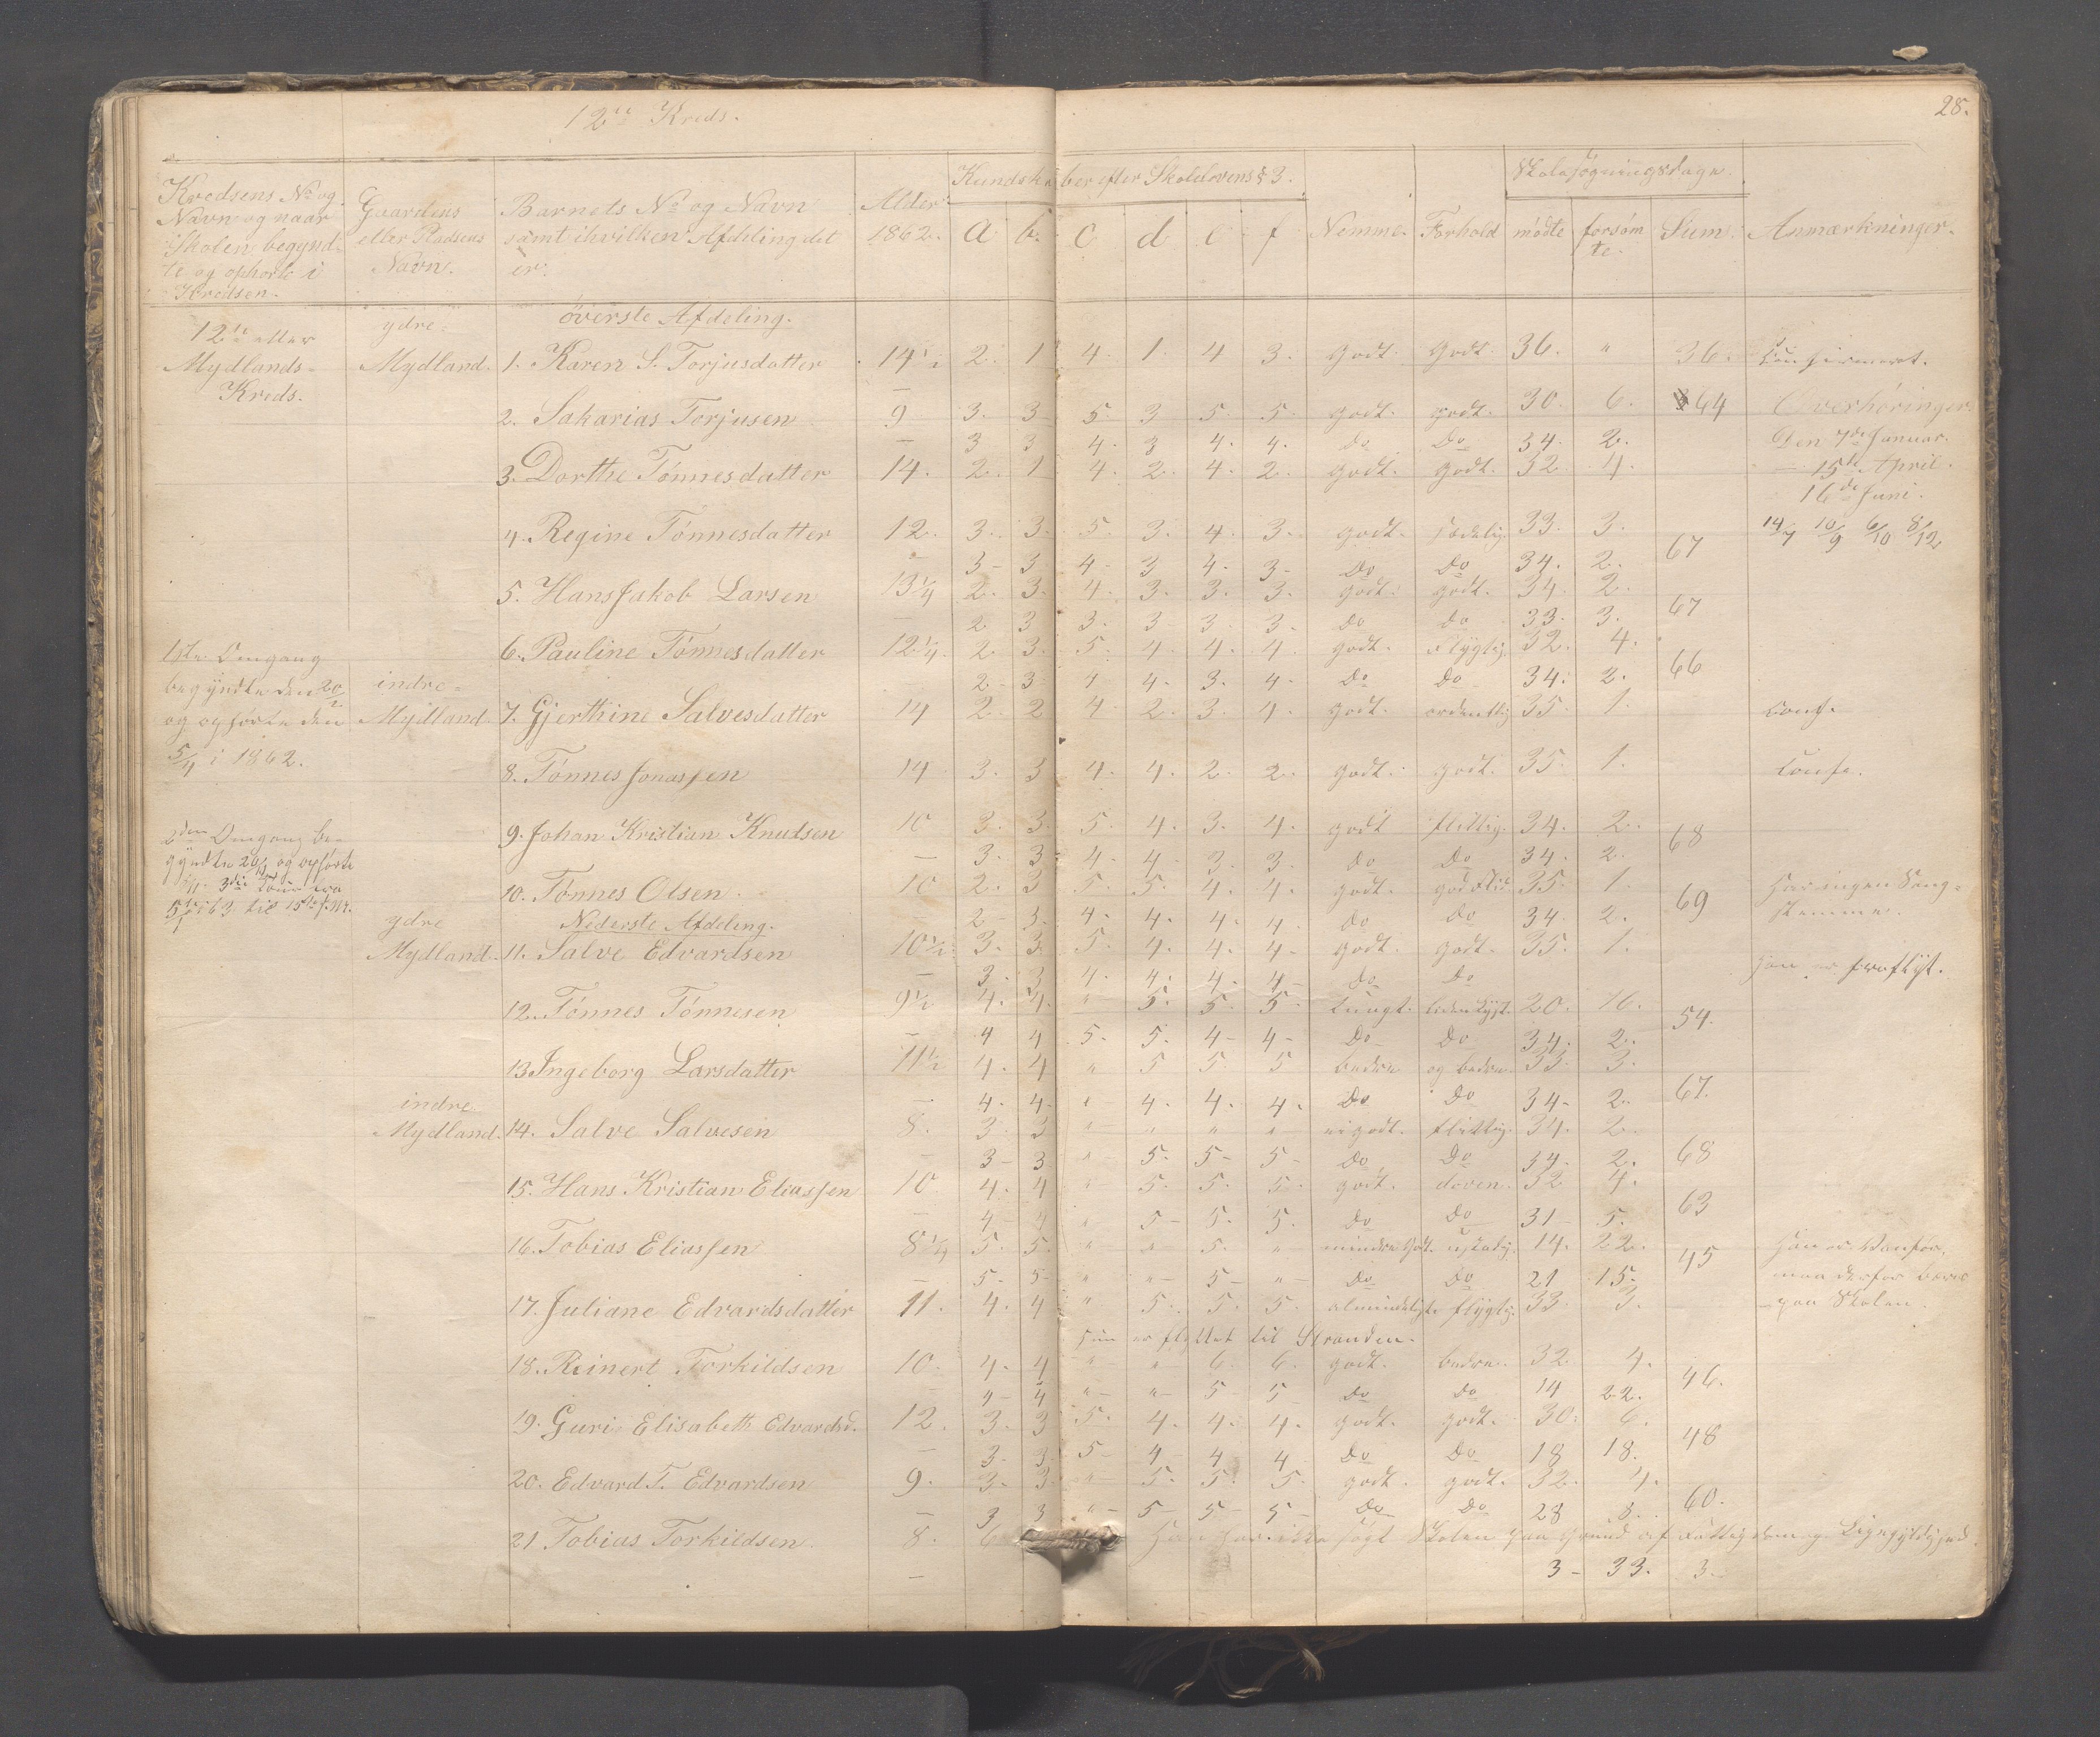 12te Kreds.
28.
Kredsens No og Navn og naar Skolen begynd-te og ophorte i Kredsen.
Gaardens eller Pladsens Navn.
Barnets No og Navn samt ihvilken Afdeling det er.
Alder 1862.
Kundskaber efter Skolelovens § 3.
a b. c d e f
Nemme. Forhold
Skolesøgningsdage.
mødte forsøm te. Sum.
Anmærkninger.
12te eller Mydlands-Kreds.
øverste Afdeling.
ydre Mydland. 1. Karen S. Torjusdatter 14 1/2 2. 1 4. 1 4 3. godt. godt. 36. " 36. Confirmeret.
2. Sakarias Torjusen 9 3. 3 5 3 5. 5. godt. godt. 30. 6. 64 Overhøringer.
– 3 3 4. 3 4. 4. Do Do 34. 2. Den 7de Januar.
3. Dorthe Tønnesdatter 14. 2. 1 4 2. 4. 2. godt. godt. 32 4. 15de April.
16de Juni.
4. Regine Tønnesdatter 12. 3. 3. 5. 3. 4. 3. godt. sædelig. 33. 3. 67 14/7 10/9 6/10 8/12
– 3– 3 4– 3 4– 3– Do Do 34. 2.
5. Hans Jakob Larsen 13 1/4 2. 3. 4. 3. 3. 3. godt. godt. 34. 2. 67
– 2 3 3. 3– 3 3. Do Do 33. 3.
6. Pauline Tønnesdatter 12 1/4. 2. 3. 5. 4. 4. 4. godt. flygtig. 32. 4. 66
2– 3 4 4. 3. 4. Do Do 34. 2.
1ste Omgang begyndte den 20/2 og ophørte den 5/4 i 1862.
indre Mydland 7. Gjerthine Salvesdatter 14 2. 2 4. 2. 3. 4. godt. ordentlig 35. 1. Conf.
8. Tønnes Jonassen 14 3. 3 4. 4. 2. 2. godt. godt. 35. 1. Conf.
2den Omgang be-gyndte
9. Johan Kristian Knudsen 10 3. 3. 5. 4. 3. 4. godt flittig. 34. 2. 68
– 3. 3 4– 4– 3. 3. Do Do 34. 2.
10. Tønnes Olsen. 10 2. 3 5. 5. 4. 4. godt. god Flid 35. 1. 69 Har ingen Sang-stemme.
2– 3. 4. 4. 4. 4. Do Do 34. 2.
Nederste Afdeling.
ydre Mydland. 11. Salve Edvardsen 10 1/2. 3. 3. 5. 4. 4. 4– godt. godt. 35. 1. Han er fraflyt.
– 3. 3 4. 4. 4. 4– Do Do
12. Tønnes Tønnesen 9 1/2 4. 4. " 5. 5. 5. tungt. 20. 16. 54.
– 4 4 5. 5. 4– 4– Do Do 34. 2.
13 Ingeborg Larsdatter 11 1/2 4. 4 " 5 5 5 bedre og bedre. 33. 3. 67.
– 4. 4. " 4. 4. 4. Do Do 34– 2.
indre Mydland. 14. Salve Salvesen 8. 3. 3 " " " " godt. flittig. 34. 2. 68
– 3– 3 " 5. 5– 5– Do Do 34– 2.
15. Hans Kristian Eliassen 10 4. 4 " 5. 5. 5. godt. doven. 32 4. 63
– 4– 4 " 5– 5. 5. Do Do 31– 5.
16. Tobias Eliassen 8 1/4 5. 5. " " 5. " mindre godt. ustadig. 14. 22. 45 Han er Vanfør, maa derfor bæres paa Skolen.
– 5. 5– " " 5– " Do Do 21 15.
17. Juliane Edvardsdatter 11. 4. 4 " 5. 5. 5. almindeligt flygtig. 33. 3.
Hun er flyttet til Stranden.
18. Reinert Torkildsen 10. 4. 4 " " 6. 6. godt. bedre. 32. 4. 46.
– 4– 4 " " 5– 5 Do Do 14 22.
19. Guri Elisabeth Edvardsd. 12. 3. 3 5. 4. 4. 4. godt. godt. 30. 6. 48
– 3. 3. 5– 4– 4 4 Do Do 18 18.
20. Edvard T. Edvardsen 9. 3. 3. " 5. 5. 5. godt. godt. 32. 4. 60.
– 3 3 " 5– 5– 5– Do Do 28 8.
21 Tobias Torkildsen. 8. 6 Han har ikke søgt Skolen paa Grund af Fattigdom og Ligegyldighed.
– 3– 33. 3.